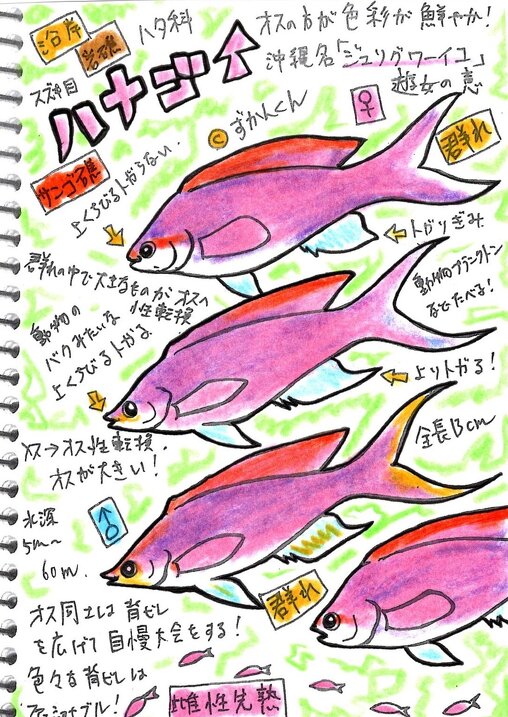 沿岸
岩礁
ハタ科
オスの方が色彩が鮮やか！
沖縄名「ジュリグワーイユ」
遊女の意
スズキ目
ハナゴイ
©ずかんくん
♀
群れ
サンゴ礁
上くちびるトガらない.
トガリぎみ
群れの中で大きなものがオスへ
性転換
動物プランクトン
などたべる！
動物の
バクみたいな
上くちびるトガる
よりトガる！
メス→オス性転換.
オスが大きい！
全長13cm
♂
水深
5m〜
60m.
群れ
オス同士は背ビレ
を広げて自慢大会をする！
色々な背ビレは
雌性先熟